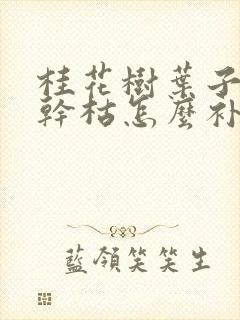 桂花樹葉子
幹枯怎麼补
藍領笑笑生